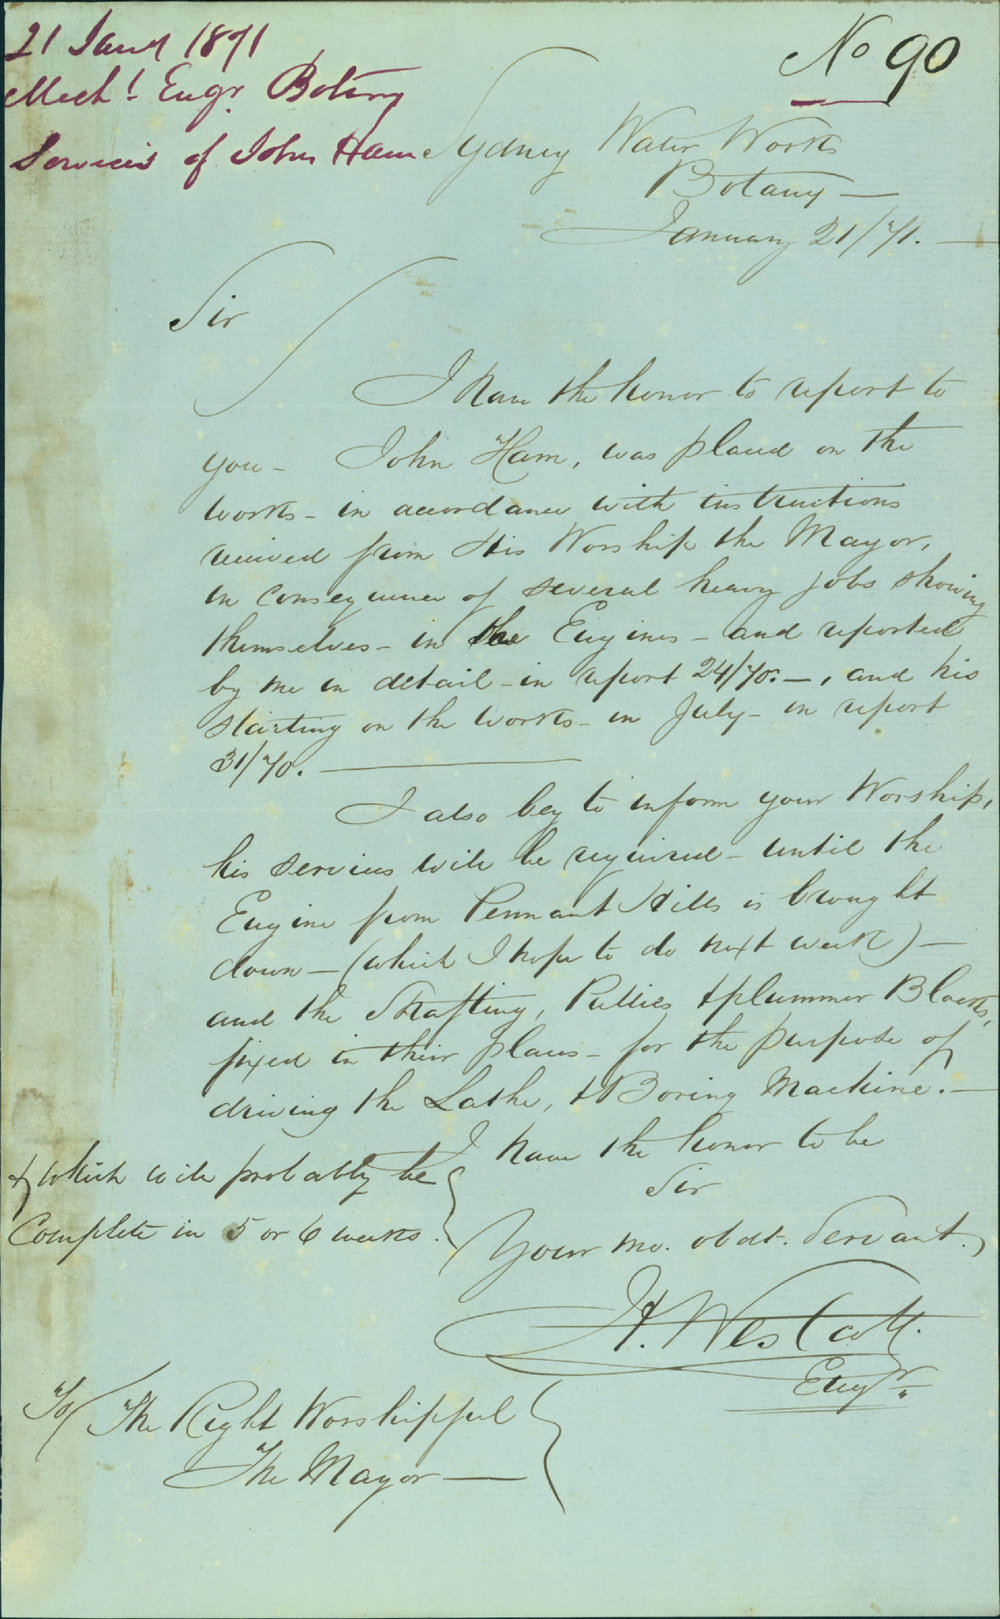 21 Jany 1871
Mechl. Engr. Botany
Services of John Ham
No 90
Sydney Water Works
Botany —
January 21/71. —
Sir
I have the honor to report to
you - John Ham, was placed on the
works - in accordance with instructions
received from His Worship the Mayor,
in consequence of several heavy jobs showing
themselves - in the Engines - and reported
by me in detail - in report 24/70. —, and his
starting on the works - in July - in report
31/70. —
I also beg to inform your Worship,
his services will be required - until the
Engine from Pennant Hills is brought
down — (which I hope to do next week) —
and the Shafting, Pullies & plummer Blocks,
fixed in their places - for the purpose of
driving the Lathe, & Boring Machine. —
& which will probably be
Complete in 5 or 6 weeks.
I have the honor to be
Sir
Your mo. obdt. Servant.
A. Westcott.
Engr.
To/ The Right Worshipful
The Mayor —